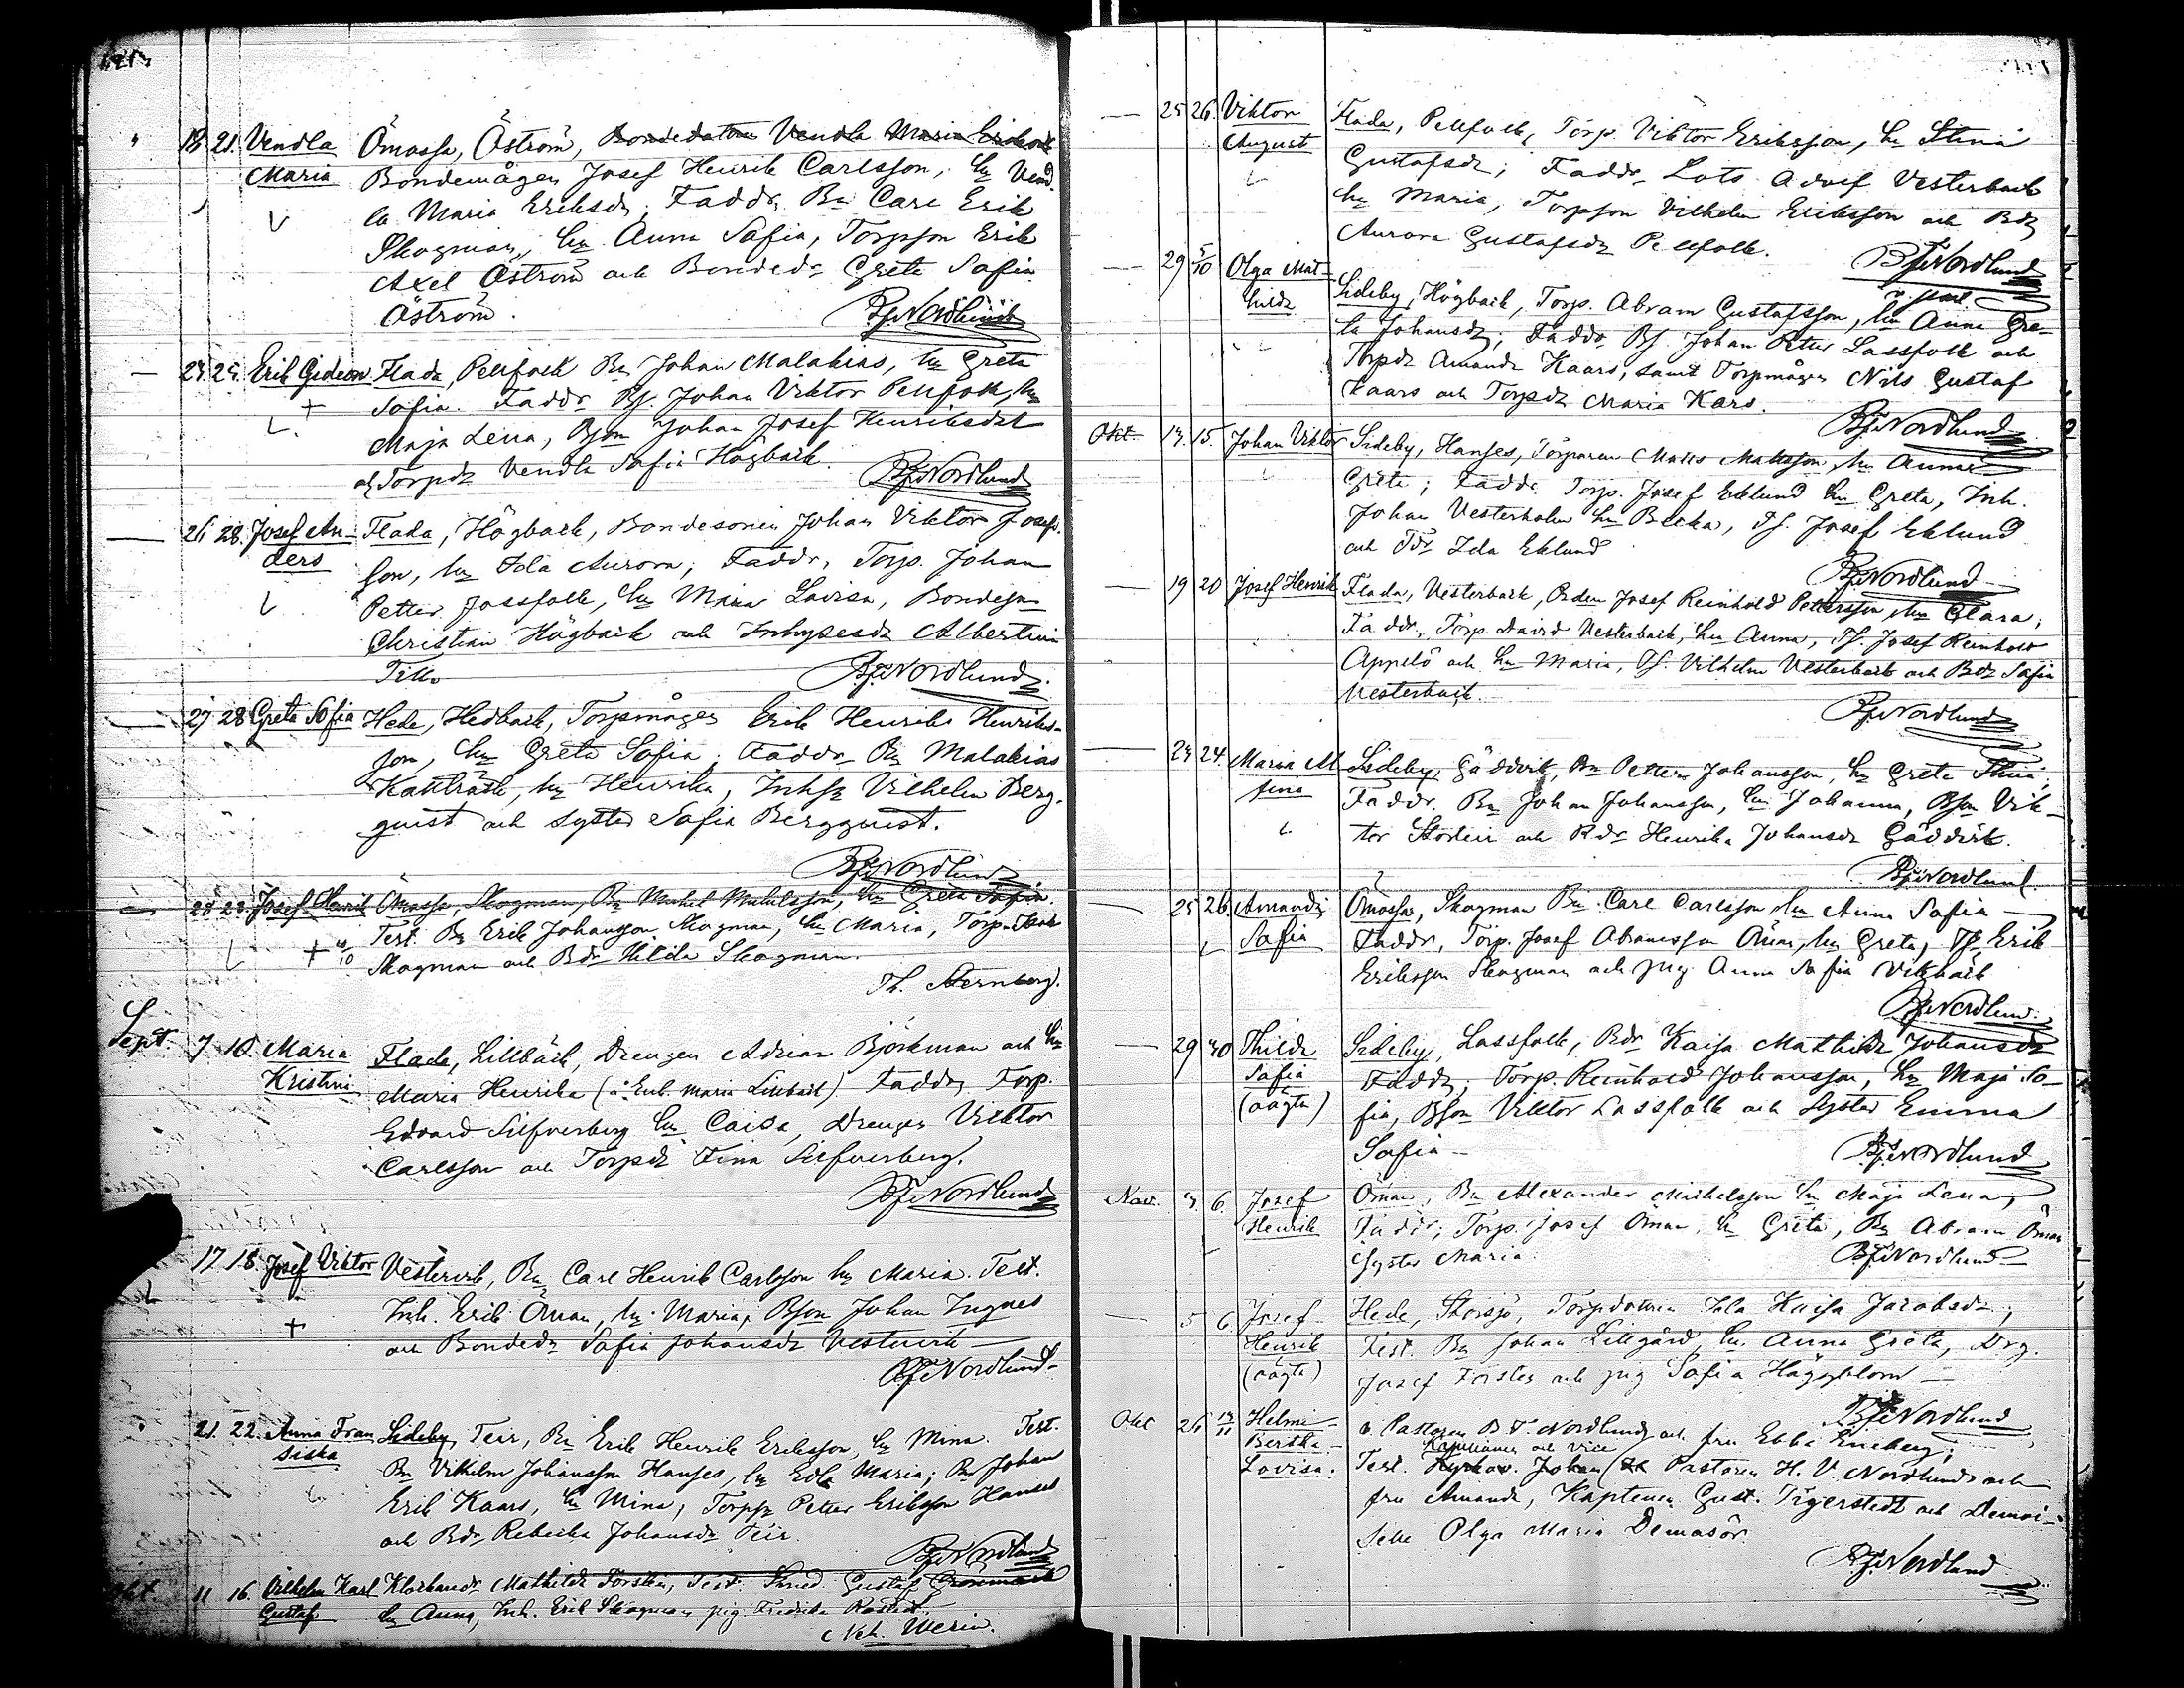 18. 21. Vendla Ömossa, Öström, Bondedottern Vendla Maria Eriksdr
Maria Bondemågen Josef Henrik Carlsson, hu Vend-
la Maria Eriksdr; Faddr Bn Carl Erik
Skogman, hu Anna Sofia, Torpson Erik
Axel Öström och Bondedr Greta Sofia
Öström.
BFNordlund
Erik Gideon Flada, Pellfolk Bn Johan Malakias, hu Greta
Sofia. Faddr Bs. Johan Viktor Pellfolk, hu
Maja Lena, Bson Johan Josef Henriksdal
och Torpdr Vendla Sofia Högback.
BFNordlund
26 28. Josef An- Flada, Högback, Bondesonen Johan Viktor Josefs-
ders son, hu Ida Aurora; Faddr, Torp. Johan
Petter Jossfolk, hu Maria Lovisa, Bondeson
Christian Högback och Inhysesdr Albertina
BFNordlund
27 28 Greta Sofia Hede, Hedback, Torpmågen Erik Henrik Henriks-
son, hu Greta Sofia; Faddr Bn Malakias
hu Henrika, Inhsr Vilhelm Berg-
quist och syster Sofia Bergquist.
BFNordlund
28 28. Josef Henrik Ömossa, Skogman, Bn Mickel Mickelsson, hu Greta Sofia.
+ 4/10 Test. Bn Erik Johansson Skogman, hu Maria, Torp. Isak
Skogman och Bdr Hilda Skogman.
Th. Sternberg.
Sept. 7 10. Maria Flada, Lillbäck, Drengen Adrian Björkman och hu
Kristina Maria Henrika (å Enk. Maria Lillbäck). Faddr, Torp.
Edvard Silfverberg hu Caisa, Drengen Viktor
Carlsson och Torpdr Fina Silfverberg.
BFNordlund
17 18. Josef Viktor Vestervik, Bn Carl Henrik Carlsson hu Maria. Test.
+ Inh. Erik Öman, hu Maria, Bson Johan Ingves
och Bondedr Sofia Johansdr Vestervik
BFNordlund
21. 22. Anna Fran Sideby, Teir, Bn Erik Henrik Eriksson, hu Mina. Test.
siska Bn Vilhelm Johansson Hanses, hu Edla Maria; Bn Johan
Erik Kaars, hu Mina, Torpsr Petter Eriksson Hanses
och Bdr Rebecka Johansdr Teir.
BFNordlund
Okt. 11 16. Vilhelm Karl Mathilda Forsten, Test. Smed. Gustaf Grönmark
Gustaf hu Anna, Inh. Erik Skogman pig. Fredrika
25 26. Viktor Flada, Pellfolk, Torp. Viktor Eriksson, hu Stina
August Gustafsdr; Faddr Lots Adolf Vesterback
hu Maria, Torpson Vilhelm Eriksson och Bdr
Aurora Gustafsdr Pellfolk.
BFNordlund
29 5/10 Olga Mat- Sideby, Högback, Torp. Abram Gustafsson, hu Anna Gre-
hilda ta Johansdr; Faddr Bs. Johan Petter Lassfolk och
Torpdr Amanda Kaars, samt Torpmågen Nils Gustaf
Kaars och Torpdr Maria Kars.
BFNordlund
Okt. 13. 15. Johan Viktor Sideby, Hanses, Torparen Matts Mattsson, hu Anna
Greta; Faddr Torp. Josef Eklund hu Greta, Inh.
Johan Vesterholm hu Becka, Ts. Josef Eklund
och Tdr Ida Eklund
BFNordlund
19 20 Josef Henrik Flada, Vesterback, Bden Josef Reinhold Pettersson hu Clara;
Faddr, Torp. David Vesterback, hu Anna, Ts. Josef Reinhold
Appelö och hu Maria, Ts. Vilhelm Vesterback och Bdr Sofia
Vesterback.
BFNordlund
23 24. Maria Sideby, Gäddvik, Bn Petter Johansson, hu Greta Stina;
Faddr. Bn Johan Johansson, hu Johanna, Bson Vik-
tor Storteir och Bdr Henrika Johansdr Gäddvik.
BFNordlund.
25 26. Amanda Ömossa, Skogman Bn. Carl Carlsson hu Anna Sofia
Sofia Faddr, Torp. Josef Abramsson Öman, hu Greta, Ts. Erik
Eriksson Skogman och pig Anna Sofia Vikbäck
BFNordlund.
29 30 Thilda Sideby, Lassfolk, Bdr Kaisa Mathilda Johansdr
Sofia Faddr, Torp. Reinhold Johansson, hu Maja So-
(oägta) fia, Bson Viktor Lassfolk och Syster Emma
Sofia
BFNordlund
Nov. 3. 6. Josef Öman, Bn Alexander Mickelsson hu Maja Lena,
Henrik Faddr, Torp. Josef Öman, hu Greta, Bn Abram Öman
Syster Maria. BFNordlund
5 6. Josef Hede, Storsjö, Torpdottren Ida Kaisa Jacobsdr;
Henrik Test. Bn Johan Lillgård, hu Anna Greta, Drg.
(oägta) Josef Forsten och pig Sofia Häggblom
BFNordlund
Okt 26 13/11 Helmi Pastoren B. F. Nordlund och fru Ebba Eneberg;
Bertha Kapellanen och vice
Lovisa. Test. Pastoren H. V. Nordlund och
fru Amanda, Kaptenen Gust. Tigerstedt och Demoi-
selle Olga Maria Demasör
BFNordlund